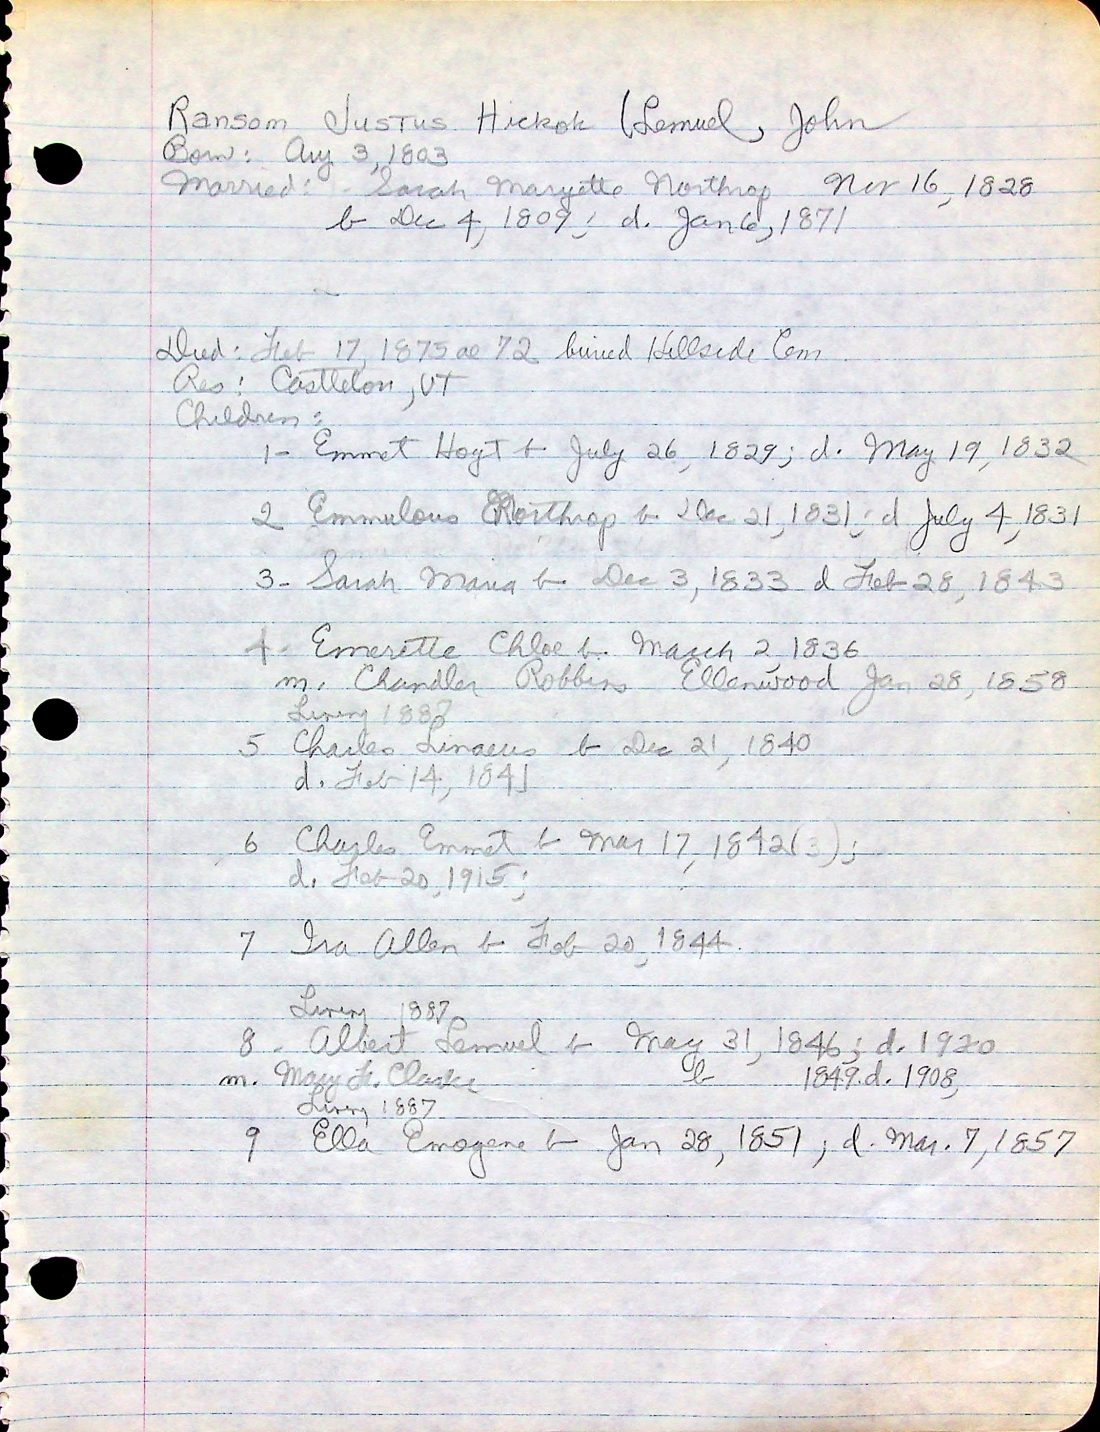 Ransom Justus Hickok (Lemuel, John
Born: Aug 3, 1803
Married: Sarah Maryette Northrop Nov 16, 1828
b Dec 4, 1809; d. Jan 6, 1871
Died: Feb 17, 1875 ae 72 buried Hillside Cem
Res: Castleton, VT
Children:
1- Emmet Hoyt b July 26, 1829; d. May 19, 1832
2 Emmulous Northrop b Dec 21, 1831; d July 4, 1831
3- Sarah Maria b Dec 3, 1833 d Feb 28, 1843
4- Emerette Chloe b. March 2, 1836
m. Chandler Robbins Ellenwood Jan 28, 1858
Living 1887
5 Charles Linaeus b Dec 21, 1840
d. Feb 14, 1841
6 Charles Emmet b Mar 17, 1842(3);
d. Feb 20, 1915;
7 Ira Allen b Feb 20, 1844.
Living 1887
8 - Albert Lemuel b May 31, 1846; d. 1920
m. Mary F. Clarke b 1849. d. 1908,
Living 1887
9 Ella Emogene b Jan 28, 1851; d. Mar. 7, 1857